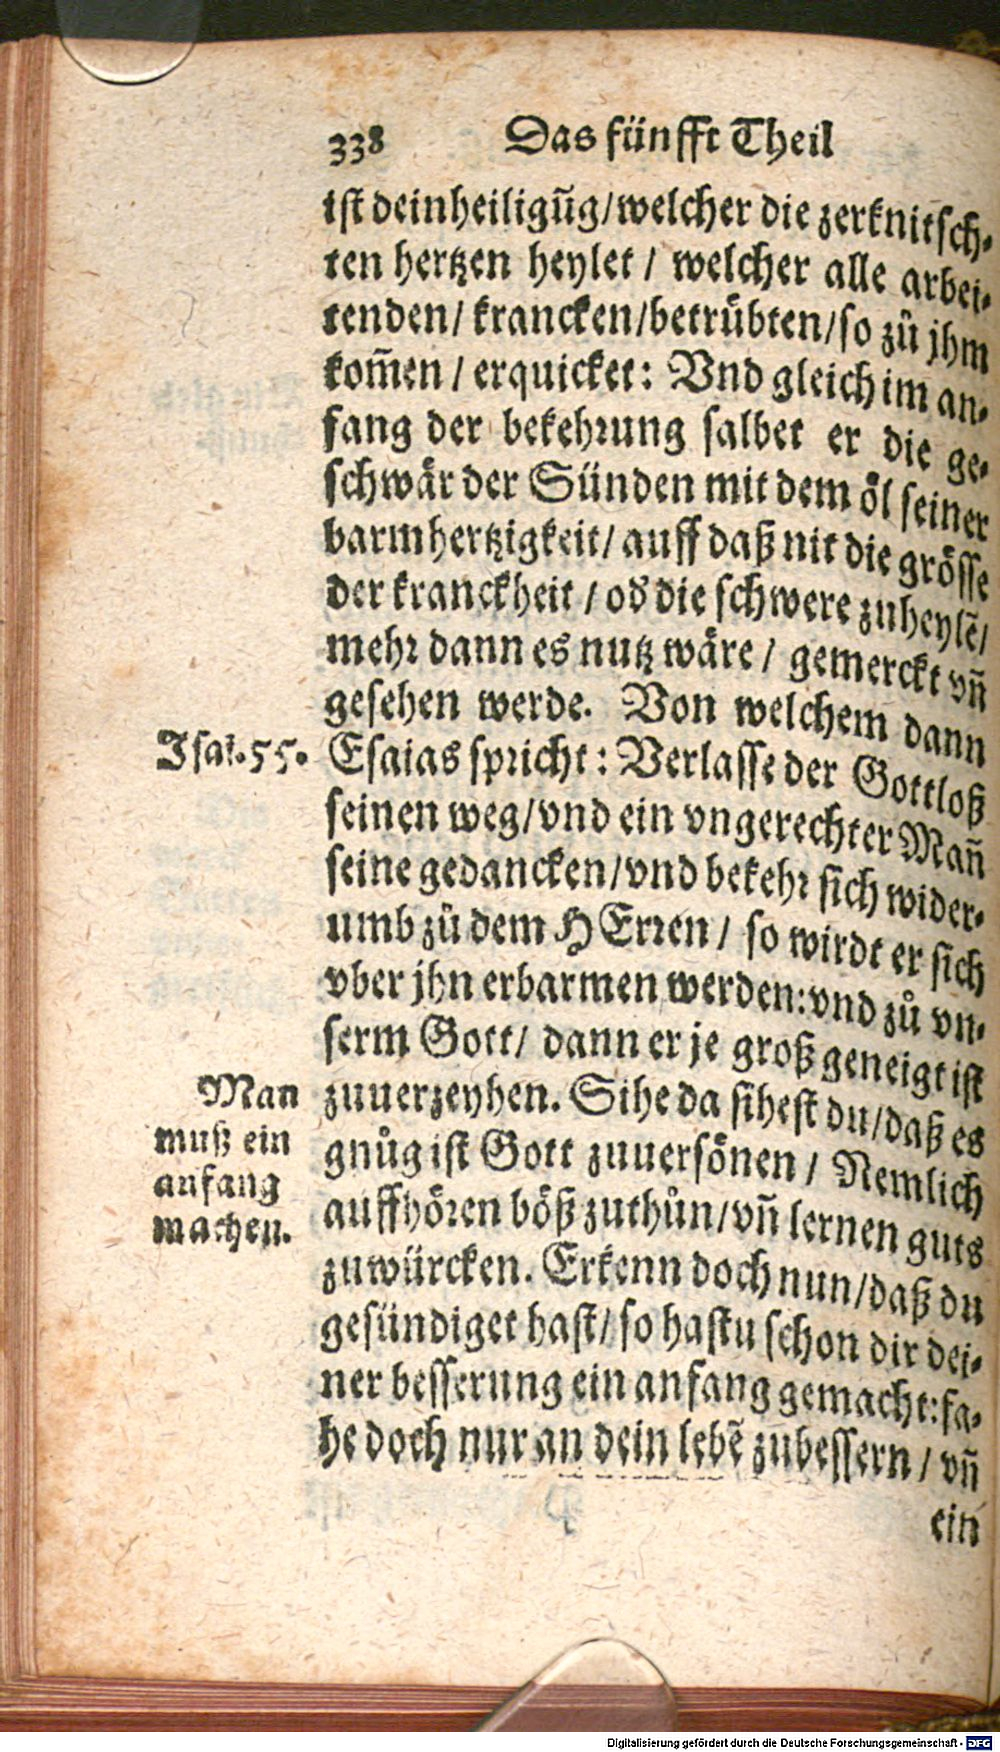 338 Das fünfft Theil
ist deinheiligūg/welcher die zerknitsch-
ten hertzen heylet / welcher alle arbei-
tenden/ krancken/betrübten/so zů jhm
kom̄en / erquicket: Vnd gleich im an-
fang der bekehrung salbet er die ge-
schwär der Sünden mit dem öl seiner
barmhertzigkeit/ auff daß nit die grösse
der kranckheit / od die schwere zuheylē/
mehr dann es nutz wäre / gemerckt vn̄
gesehen werde. Von welchem dann
Isai.55. Esaias spricht: Verlasse der Gottloß
seinen weg/vnd ein vngerechter Man̄
seine gedancken/vnd bekehr sich wider-
umb zů dem HErren / so wirdt er sich
vber jhn erbarmen werden:vnd zů vn-
serm Gott/ dann er je groß geneigt ist
Man zuuerzeyhen. Sihe da sihest du/daß es
muß ein gnůg ist Gott zuuersönen / Nemlich
anfang auffhören böß zuthůn/vn̄ lernen guts
machen. zuwürcken. Erkenn doch nun/daß du
gesündiget hast/ so hastu schon dir dei-
ner besserung ein anfang gemacht:fa-
he doch nur an dein lebē zubessern / vn̄
ein
Digitalisierung gefördert durch die Deutsche Forschungsgemeinschaft - DFG